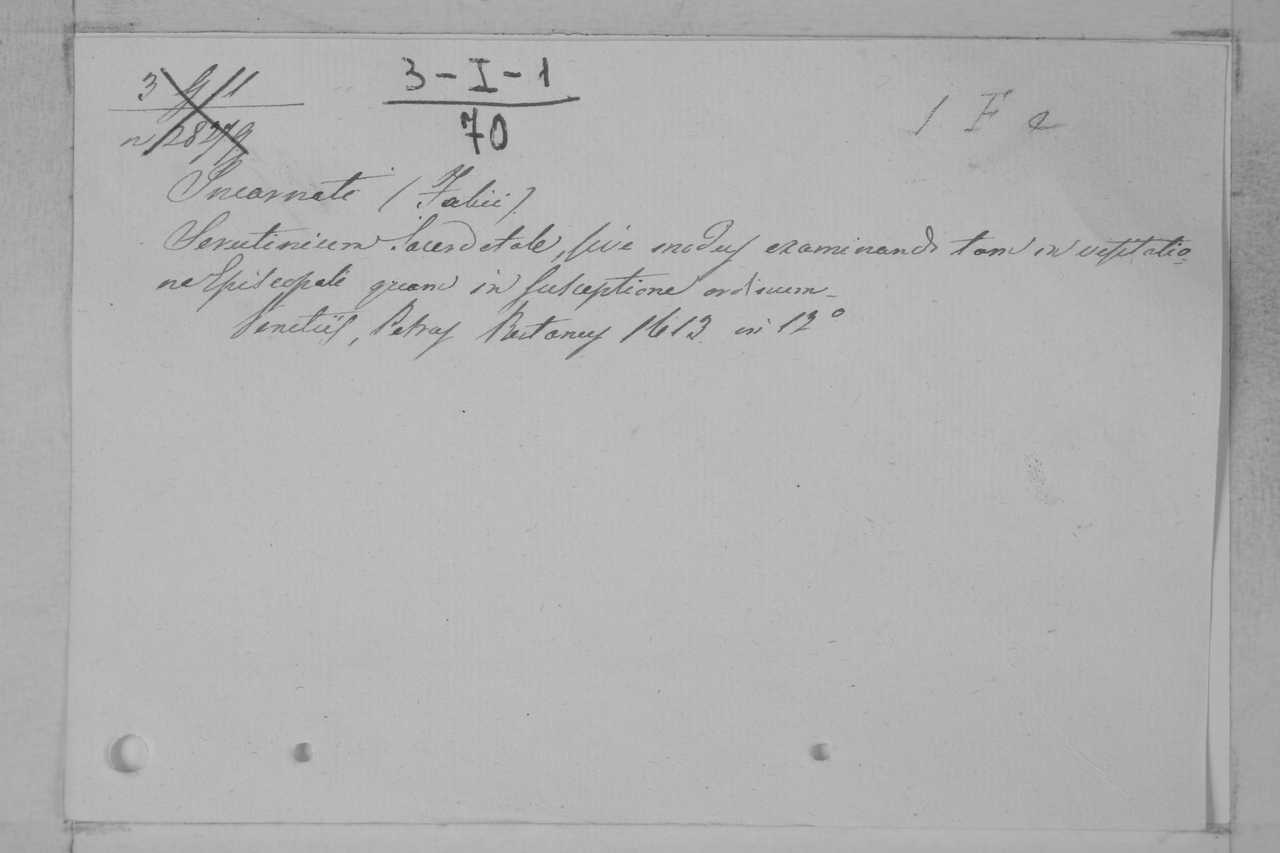 3 g/1
n 28279
3-I-1
70
1 F 2
Incarnati (Fabii).
Scrutinium Sacerdotale, sive modus examinandi tam in visitatio-
ne Episcopali quam in susceptione ordinum_
Venetiis, Petrus 1613 in 12º